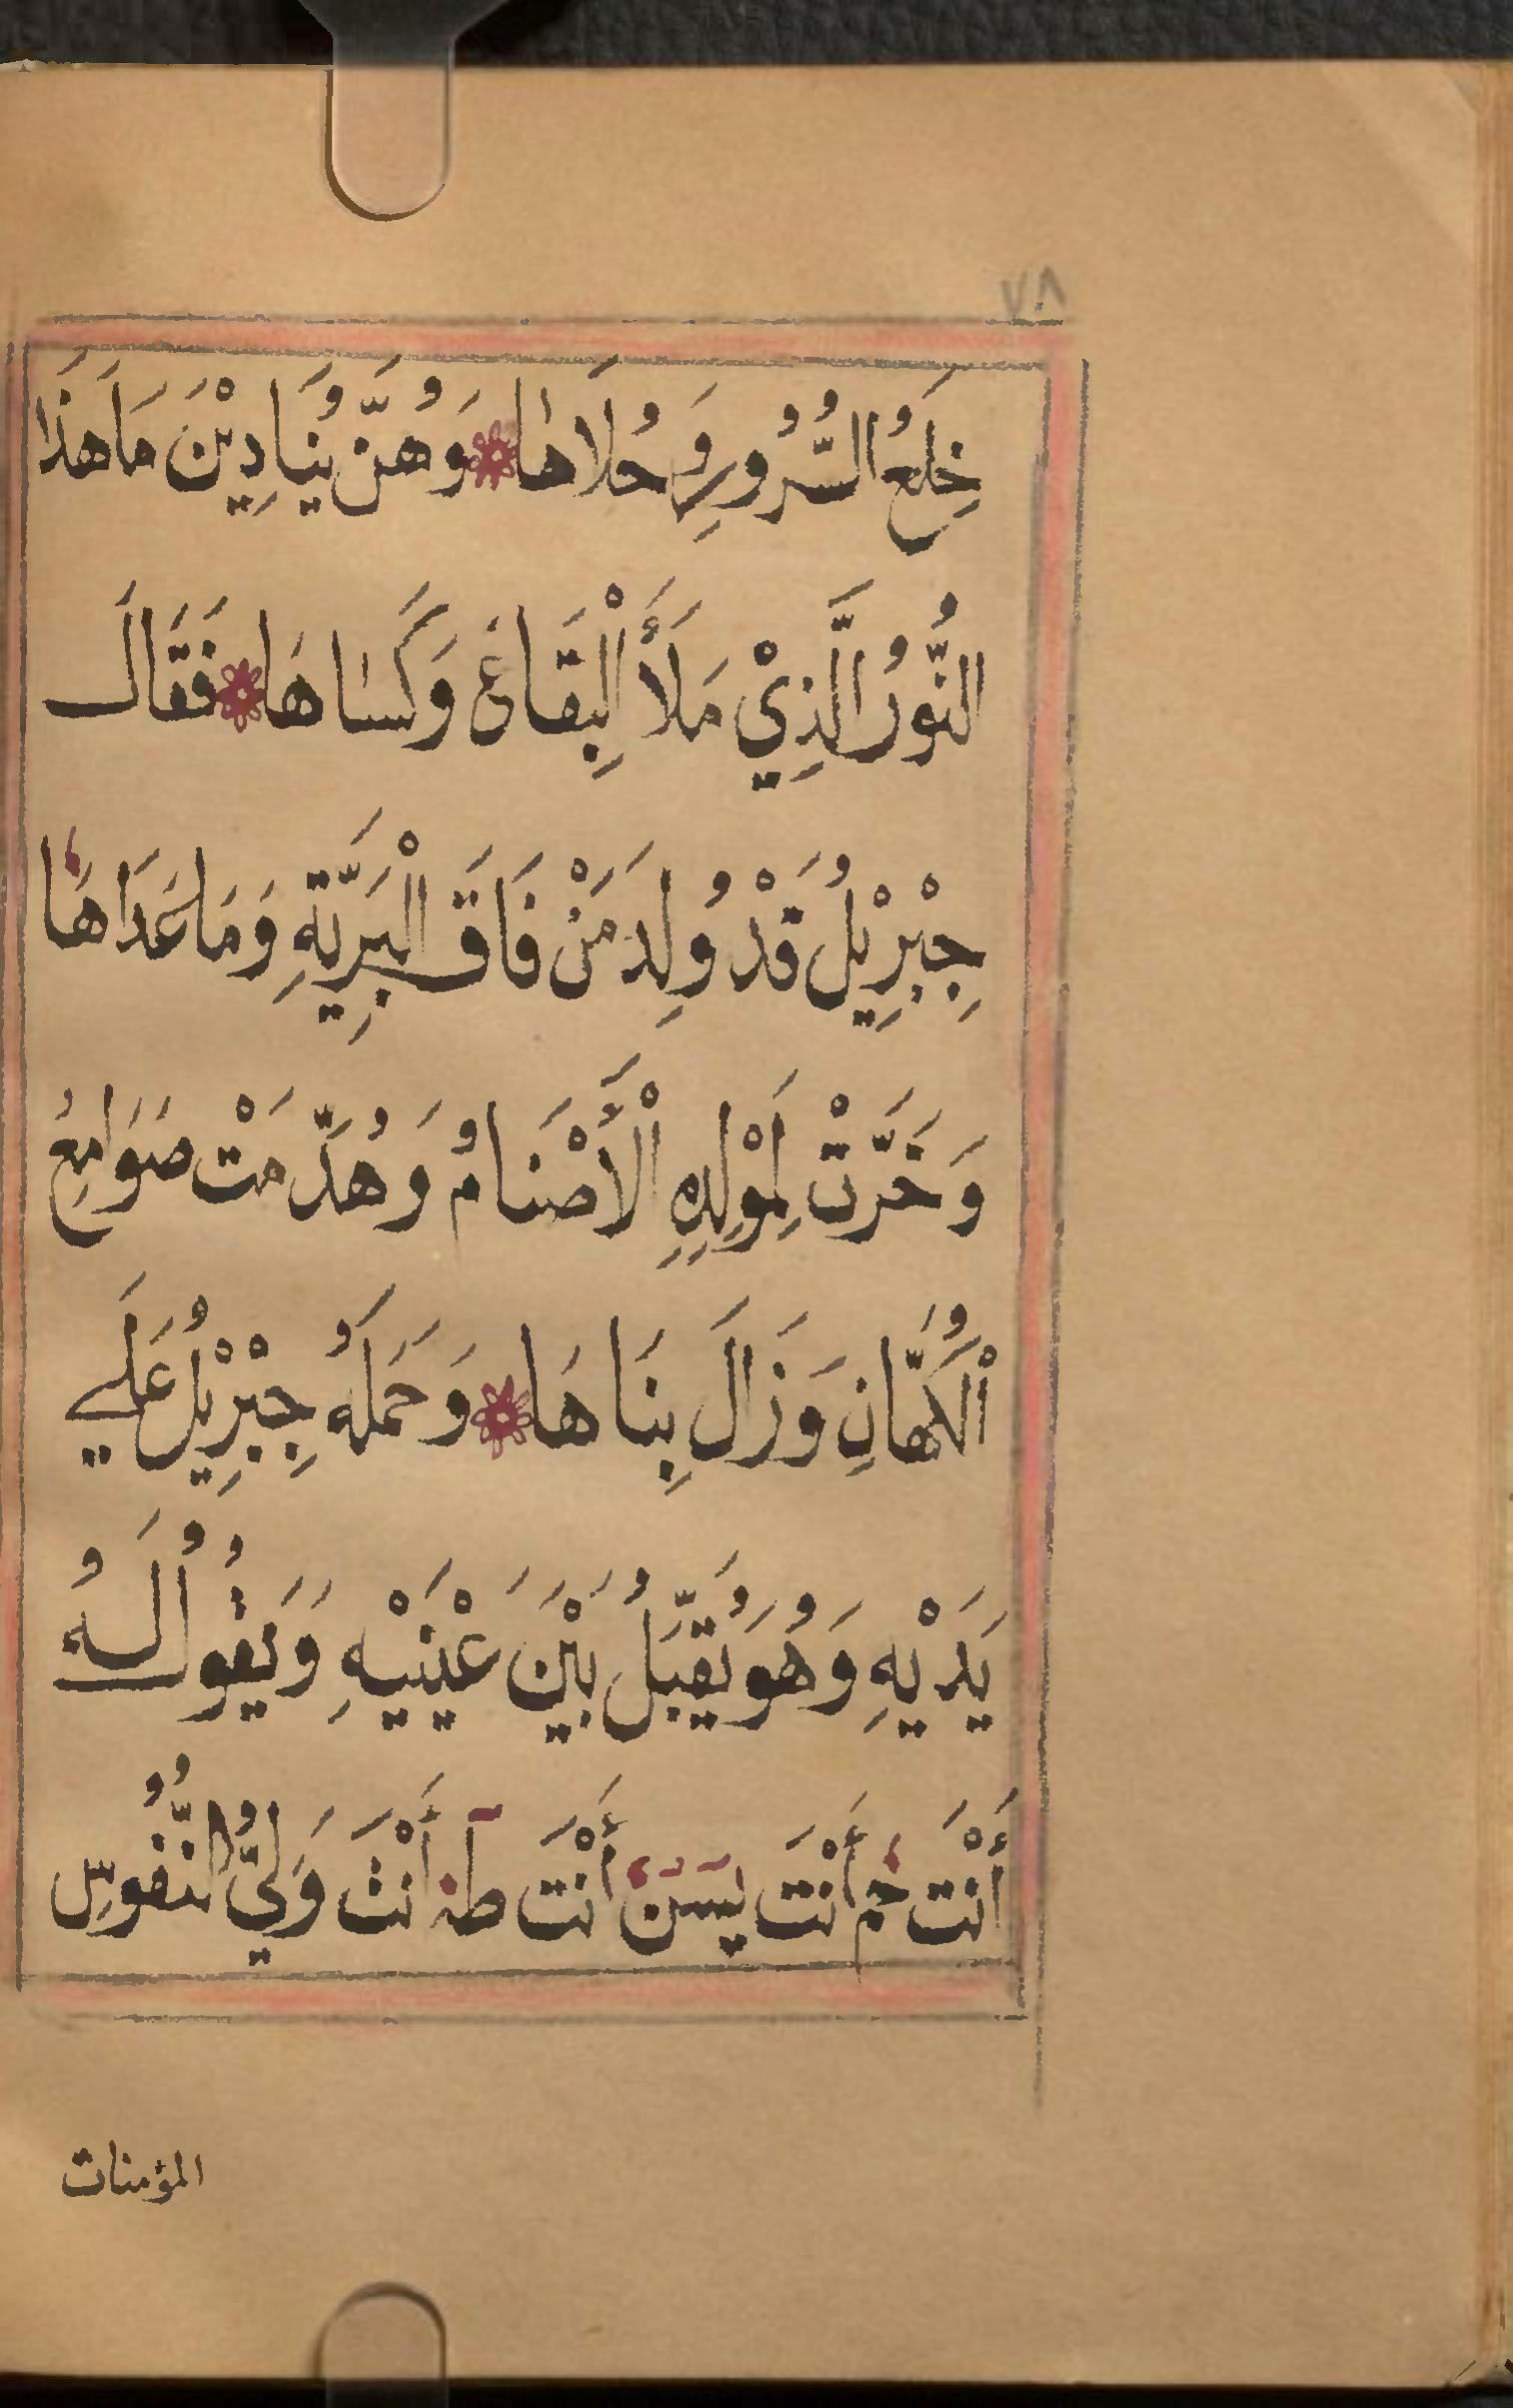 ٧٨
خِلَعُ السُّرُورِ وَحُلَاهَا وَهُنَّ يُنَادِيْنَ مَا هَذَا
النُّوْرُ الَّذِيْ مَلَأَ الْبِقَاعَ وَكَسَاهَا فَقَالَ
جِبْرِيْلُ قَدْ وُلِدَ مَنْ فَاقَ الْبَرِيَّةِ وَمَا عَدَاهَا
وَخَرَّتْ لِمَوْلِدِهِ الْأَصْنَامُ وَهُدِّمَتْ صَوَامِعُ
الْكُهَّانِ وَزَالَ بِنَاهَا وَحَمَلَهُ جِبْرِيْلُ عَلَي
يَدَيْهِ وَهُوَ يُقَبِّلُ بَيْنَ عَيْنَيْهِ وَيَقُولُ لَهُ
أَنْتَ حٰم أَنْتَ يٰسٓ أَنْتَ طٰهٰ أَنْتَ وَلِيُّ النُّفُوسِ
المؤمنات